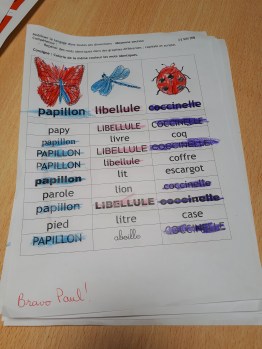 papillon libellule coccinelle
papy LIBELLULE COCCINELLE
papillon livre coq
PAPILLON LIBELLULE COCCINELLE
PAPILLON libellule coffre
papillon lit escargot
parole lion coccinelle
papillon LIBELLULE coccinelle
pied litre case
PAPILLON COCCINELLE
Bravo Paul!